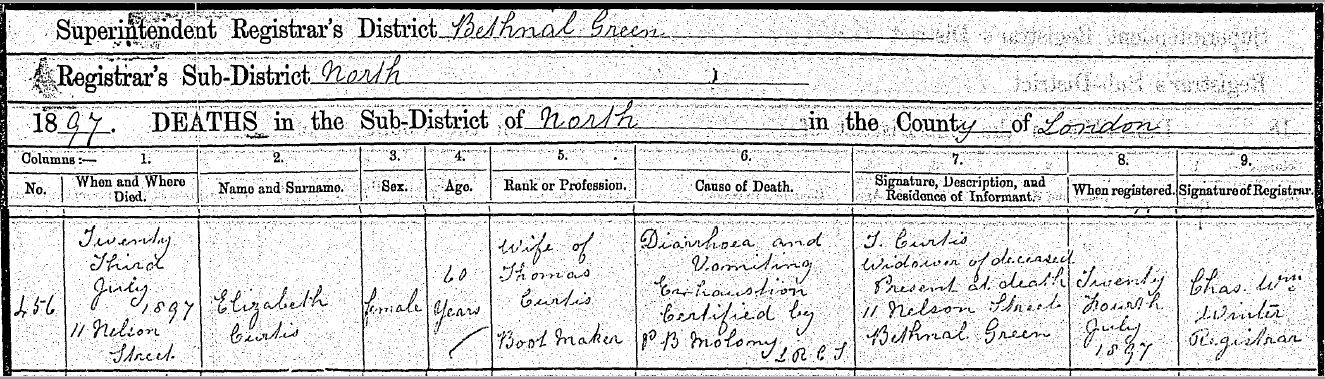 Superintendent Registrar's District Bethnal Green
Registrar's Sub-District North
1897. DEATHS in the Sub-District of North in the County of London
Columns:— 1. 2. 3. 4. 5. 6. 7. 8. 9.
No. When and Where Died. Name and Surname. Sex. Age. Rank or Profession. Cause of Death. Signature, Description, and Residence of Informant. When registered. Signature of Registrar.
456
Twenty
Third
July
1897
11 Nelson
Street
Elizabeth
Curtis
female
60
Years
Wife of
Thomas
Curtis
Boot Maker
Diarrhoea and
Vomiting
Exhaustion
Certified by
P B Molony
L R C S
T. Curtis
Widower of deceased
Present at death
11 Nelson Street
Bethnal Green
Twenty
Fourth
July
1897
Chas. Wm
Winter
Registrar